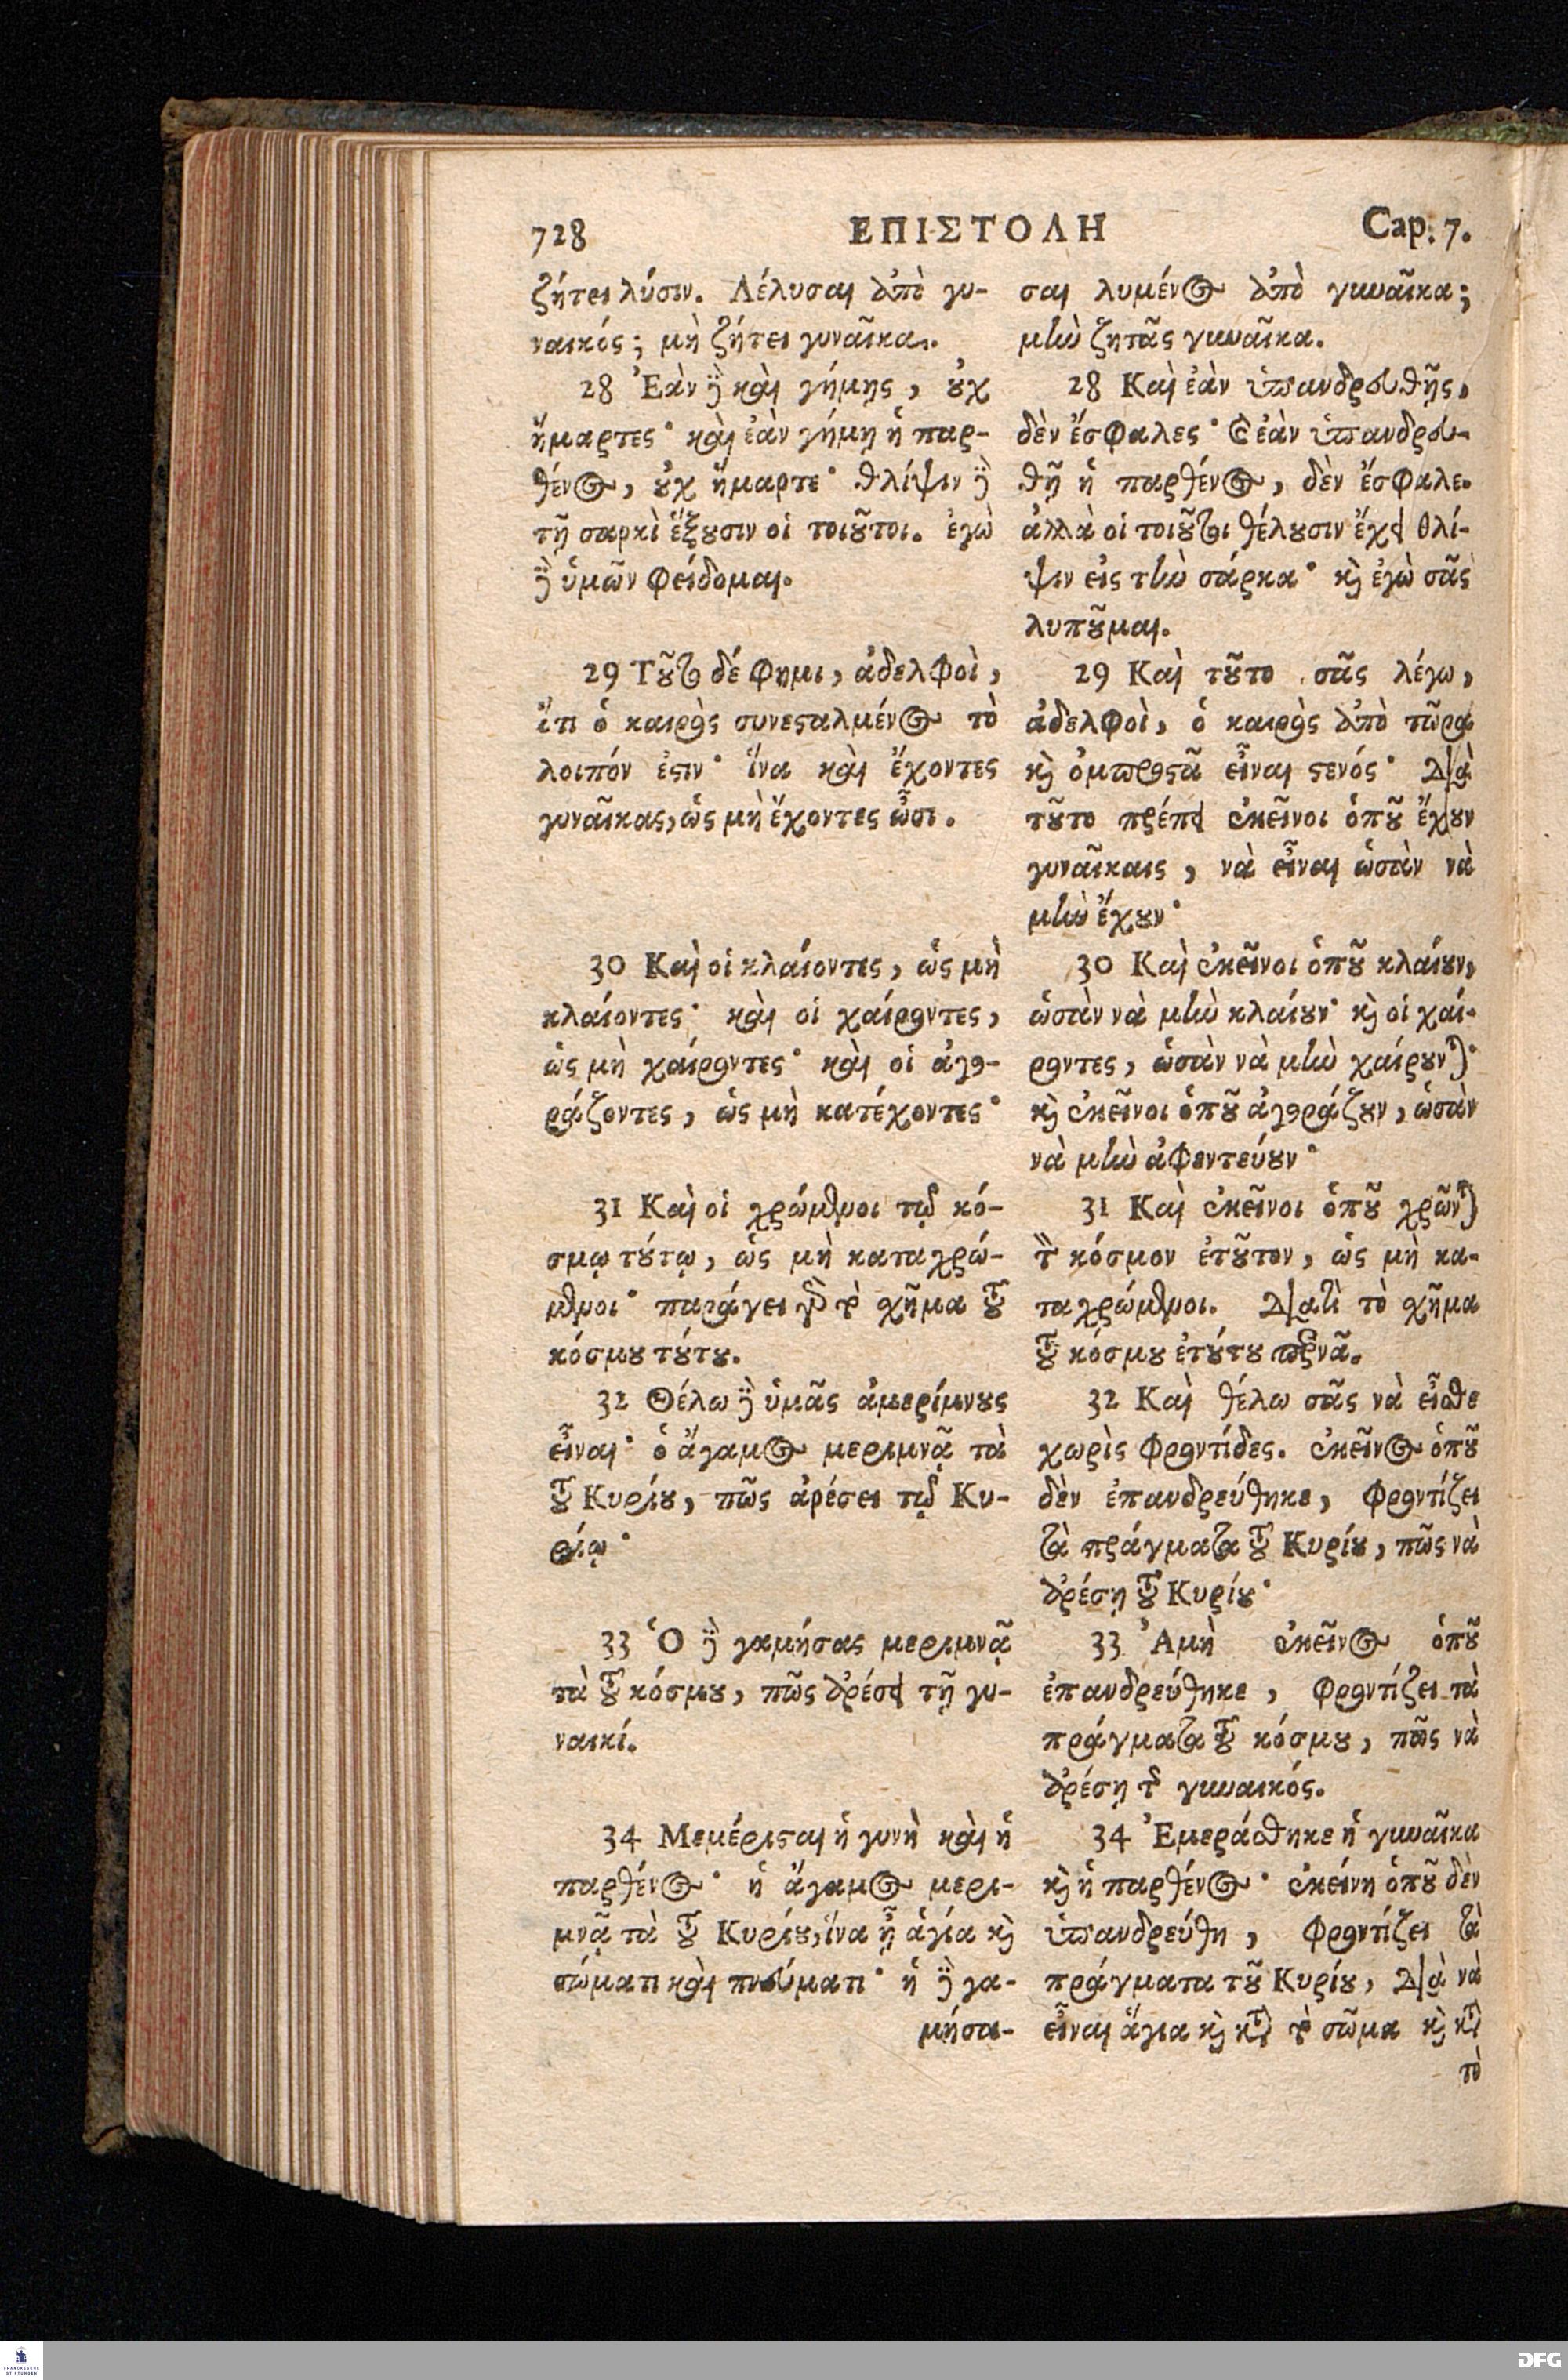 728 ΕΠΙΣΤΟΛΗ Cap. 7.
ζήτει λύσιν. Λέλυσαι ἀπὸ γυ-
ναικός; μὴ ζήτει γυναῖκα.
28 Ἐὰν δὲ καὶ γήμης, οὐχ
ἥμαρτες· καὶ ἐὰν γήμη ἡ παρ-
θένος, οὐχ ἥμαρτε· θλίψιν δὲ
τῇ σαρκὶ ἕξουσιν οἱ τοιοῦτοι. ἐγὼ
δὲ ὑμῶν φείδομαι.
29 Τοῦτο δέ φημι, ἀδελφοὶ,
ὅτι ὁ καιρὸς συνεσταλμένος τὸ
λοιπόν ἐστιν· ἵνα καὶ ἔχοντες
γυναῖκας, ὡς μὴ ἔχοντες ὦσι.
30 Καὶ οἱ κλαίοντες, ὡς μὴ
κλαίοντες· καὶ οἱ χαίροντες,
ὡς μὴ χαίροντες· καὶ οἱ ἀγο-
ράζοντες, ὡς μὴ κατέχοντες·
31 Καὶ οἱ χρώμενοι τῷ κό-
σμῳ τούτῳ, ὡς μὴ καταχρώ-
μενοι· παράγει γὰρ τὸ σχῆμα τοῦ
κόσμου τούτου.
32 Θέλω δὲ ὑμᾶς ἀμερίμνους
εἶναι· ὁ ἄγαμος μεριμνᾷ τὰ
τοῦ Κυρίου, πῶς ἀρέσει τῷ Κυ-
ρίῳ·
33 Ὁ δὲ γαμήσας μεριμνᾷ
τὰ τοῦ κόσμου, πῶς ἀρέσει τῇ γυ-
ναικί.
34 Μεμέρισται ἡ γυνὴ καὶ ἡ
παρθένος· ἡ ἄγαμος μερι-
μνᾷ τὰ τοῦ Κυρίου, ἵνα ᾖ ἁγία καὶ
σώματι καὶ πνεύματι· ἡ δὲ γα-
μήσα-
σαι λυμένος ἀπὸ γυναῖκα;
μὴν ζητᾶς γυναῖκα.
28 Καὶ ἐὰν ὑπανδρευθῇς,
δὲν ἔσφαλες· καὶ ἐὰν ὑπανδρευ-
θῇ ἡ παρθένος, δὲν ἔσφαλε.
ἀλλὰ οἱ τοιοῦτοι θέλουσιν ἔχει θλί-
ψιν εἰς τὴν σάρκα· καὶ ἐγὼ σᾶς
λυποῦμαι.
29 Καὶ τοῦτο σᾶς λέγω,
ἀδελφοὶ, ὁ καιρὸς ἀπὸ τῶρα
καὶ ὀμπροστᾶ εἶναι στενός· Διὰ
τοῦτο πρέπει ἐκεῖνοι ὁποῦ ἔχουν
γυναῖκαις, νὰ εἶναι ὡσὰν νὰ
μὴν ἔχουν·
30 Καὶ ἐκεῖνοι ὁποῦ κλαίουν,
ὡσὰν νὰ μὴν κλαίουν· καὶ οἱ χαί-
ροντες, ὡσὰν νὰ μὴν χαίρουνται·
καὶ ἐκεῖνοι ὁποῦ ἀγοράζουν, ὡσὰν
νὰ μὴν ἀφεντεύουν·
31 Καὶ ἐκεῖνοι ὁποῦ χρῶνται
τὸν κόσμον ἐτοῦτον, ὡς μὴ κα-
ταχρώμενοι. Διατὶ τὸ σχῆμα
τοῦ κόσμου ἐτούτου περνᾶ.
32 Καὶ θέλω σᾶς νὰ εἶσθε
χωρὶς φροντίδες. ἐκεῖνος ὁποῦ
δὲν ἐπανδρεύθηκε, φροντίζει
τὰ πράγματα τοῦ Κυρίου, πῶς νὰ
ἀρέσῃ τοῦ Κυρίου·
33 Ἀμὴ ἐκεῖνος ὁποῦ
ἐπανδρεύθηκε, φροντίζει τὰ
πράγματα τοῦ κόσμου, πῶς νὰ
ἀρέσῃ τῆς γυναικός.
34 Ἐμεράσθηκε ἡ γυναῖκα
καὶ ἡ παρθένος· ἐκείνη ὁποῦ δὲν
ὑπανδρεύθη, φροντίζει τὰ
πράγματα τοῦ Κυρίου, Διὰ νὰ
εἶναι ἅγια καὶ κατὰ τὸ σῶμα καὶ κατὰ
τὸ
FRANCKESCHE
STIFTUNGEN
DFG